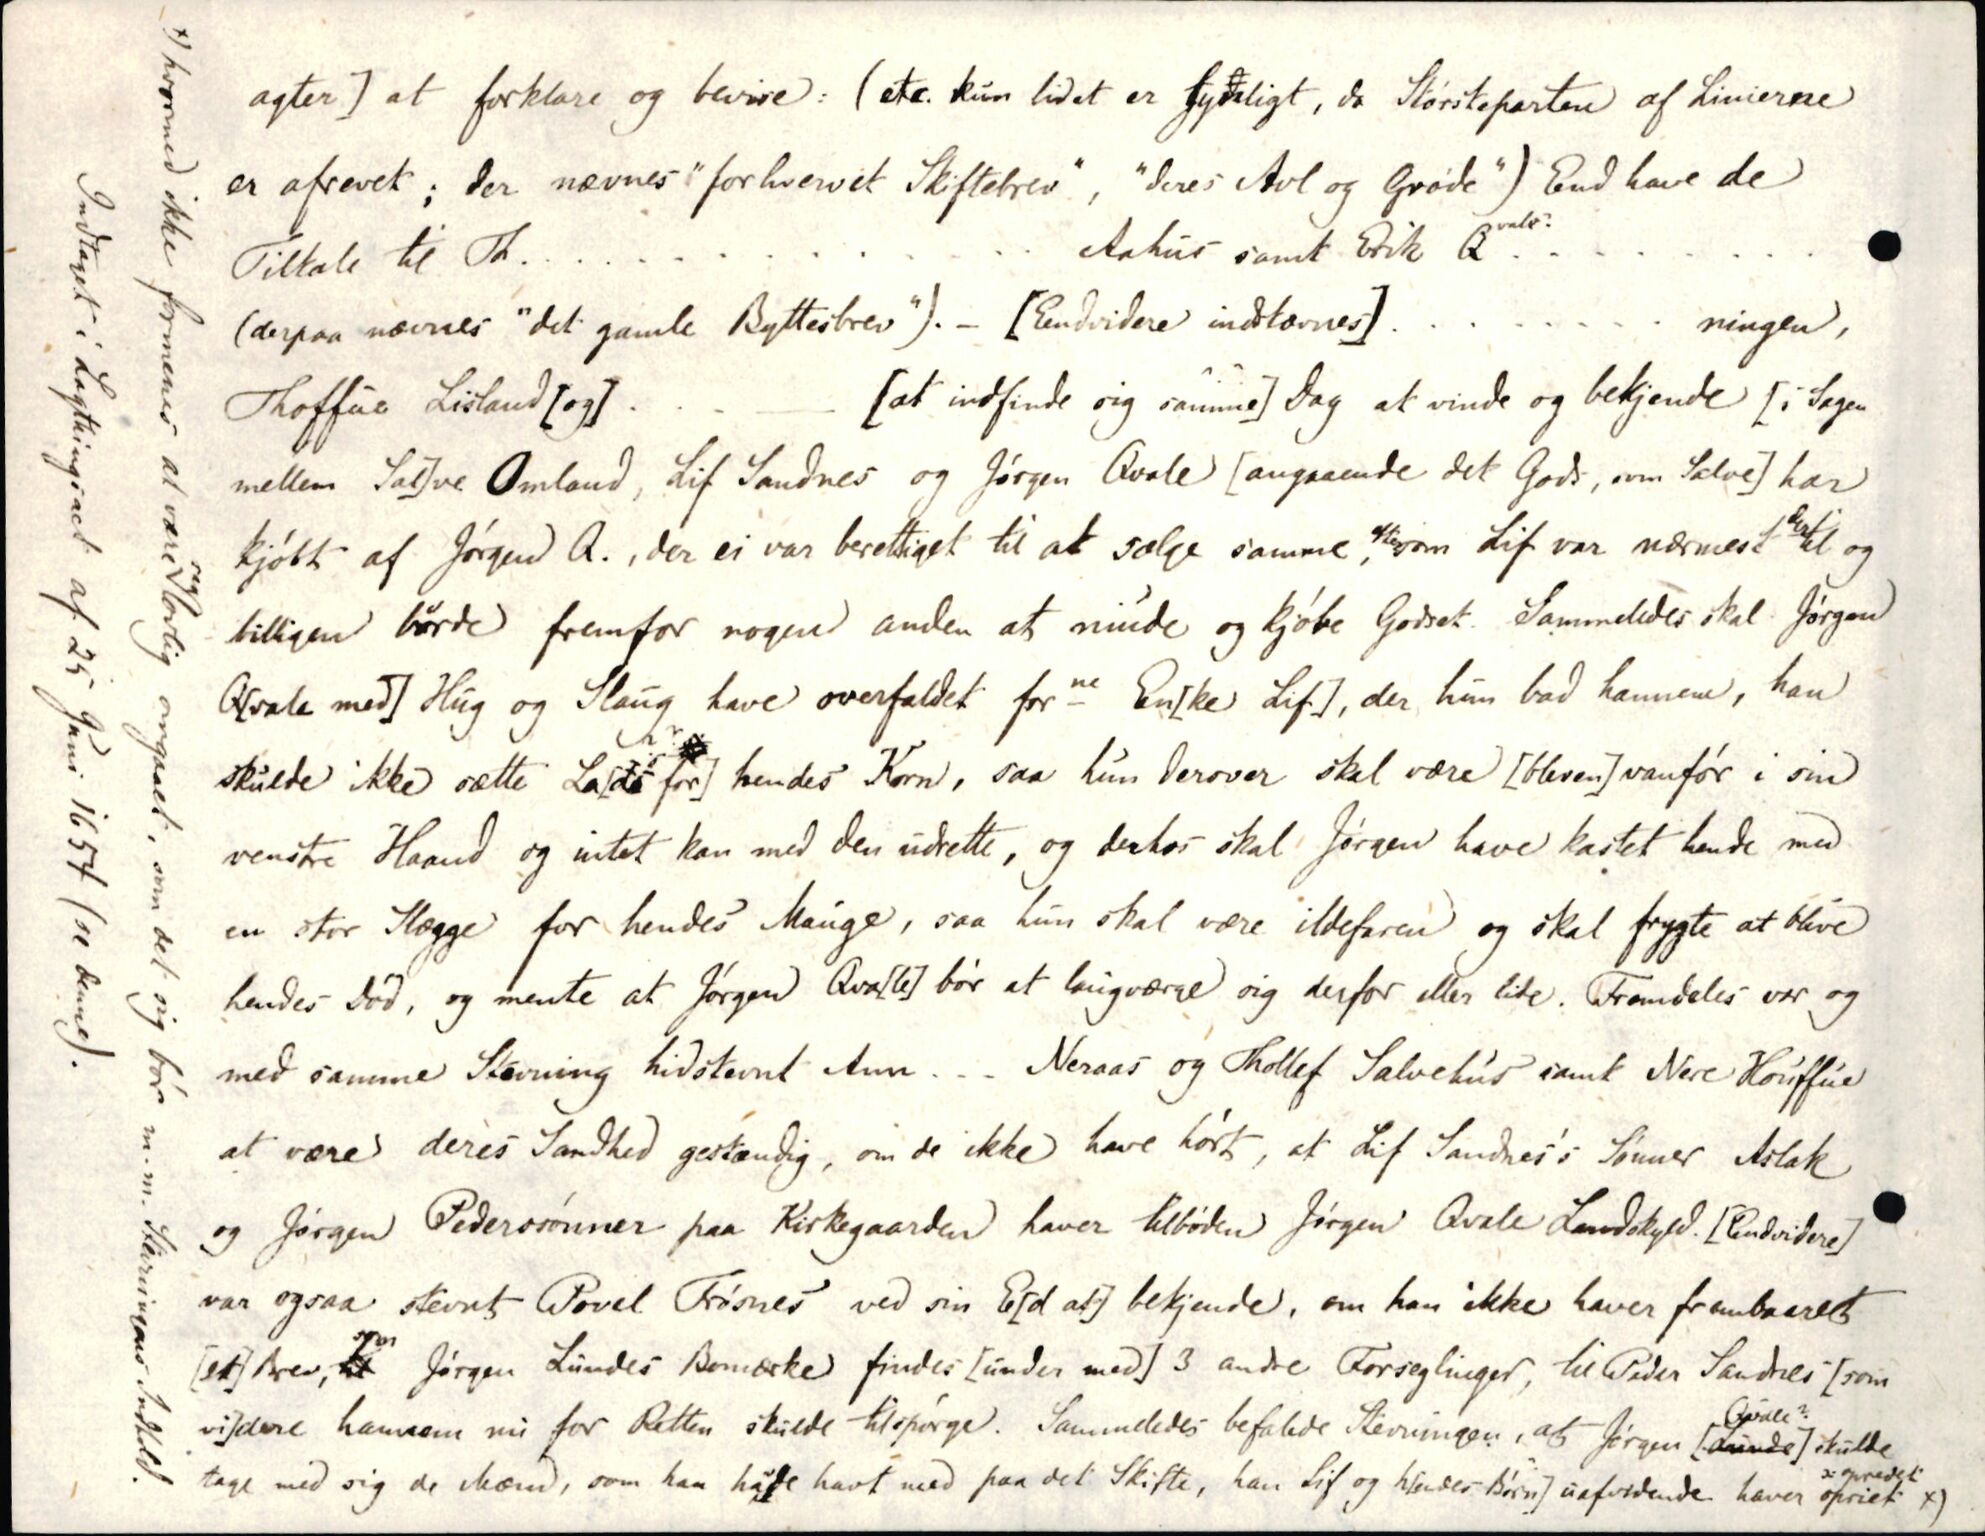 agter] at forklare og bevise: (etc. kun lidet er tydeligt, da Størsteparten af Linierne
er afrevet; der nævnes "forhvervet Skiftebrev", "deres Avl og Grøde") End have de
Tiltale til Th. . . . . . . . . . . . . Aahus samt Erik Qvale? . . . . . . . . .
(derpaa nævnes "det gamle Byttesbrev"). – [Eendvidere indstævnes] . . . . . . . . . ningen,
Thoffue Lisland [og] . . . . [at indfinde sig samme] Dag at vinde og bekjende [i Sagen
mellem Sal]ve Omland, Lif Sandnes og Jørgen Qvale [angaaende det Gods, som Salve] har
kjøbt af Jørgen Q., der ei var berettiget til at sælge samme, eftersom Lif var nærmest dertil og
billigen burde fremfor nogen anden at niude og kjøbe Godset. Sammeledes skal Jørgen
Q[vale med] Hug og Slaug have overfaldet forne En[ke Lif], der hun bad hannem, han
skulde ikke sætte La[ds for] hendes Korn, saa hun derover skal være [bleven] vanfør i sin
venstre Haand og intet kan med den udrette, og derhos skal Jørgen have kastet hende med
en stor Slægge for hendes Mauge, saa hun skal være ildefaren og skal frygte at blive
hendes Død, og mente at Jørgen Qva[le] bør at laugværge sig derfor eller lide. Fremdeles var og
med samme Stevning hidstevnt Ann . . . Neraas og Thollef Salvehus samt Nere Houffue
at være deres Sandhed gestændig, om de ikke have hørt, at Lif Sandnes's Sønner Aslak
og Jørgen Pederssønner paa Kirkegaarden haver tilbøden Jørgen Qvale Landskyld. [Endvidere]
var ogsaa stevnt Povel Trøsnes ved sin E[d at] bekjende, om han ikke haver frembaaret
[et] Brev, som Jørgen Lundes Bomærke findes [under med] 3 andre Forseglinger, til Peder Sandnes [som
vi]dere hannem nu for Retten skulde tilspørge. Sammeledes befalede Stevningen, at Jørgen [Qvale?] skulde
tage med sig de Mænd, som han hafde havt med paa det Skifte, han Lif og h[endes Børn] uafvidende haver opriet ɔ: opredet x)
x) hvormed ikke formenes at være rev lovlig omgaaet, som det sig bør m.m. Stævningens Indhold.
Indtaget i Lagthingsact af 25 Juni 1654 (se denne).